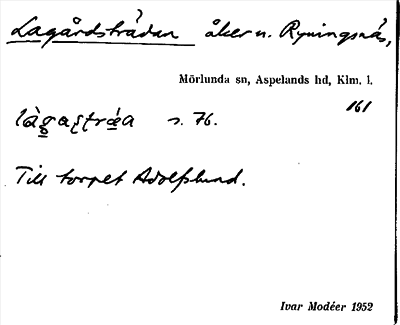 Lagårdsträdan åker u. Ryningsnäs,
Mörlunda sn, Aspelands hd, Klm. l.
161
s. 76.
Till torpet Adolfslund.
Ivar Modéer 1952